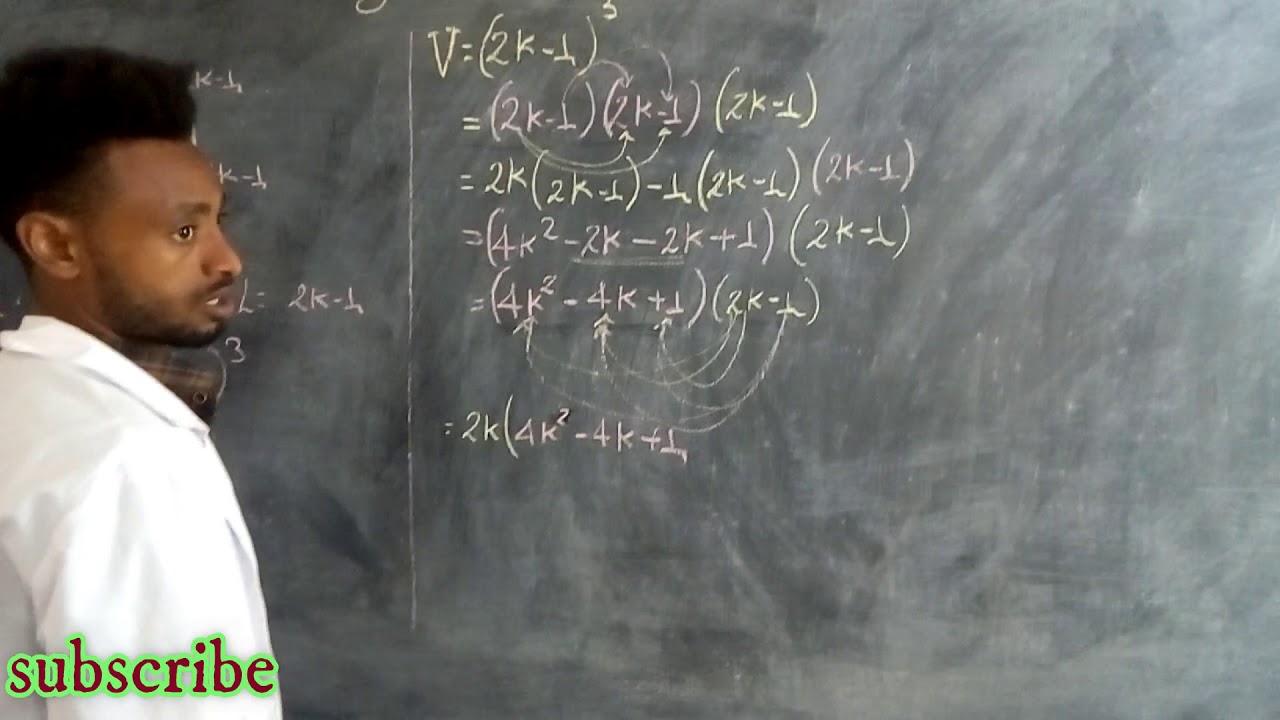 k-1
k-1
L= 2k-1
3
V=(2k-1)³
=(2k-1)(2k-1)(2k-1)
=2k(2k-1)-1(2k-1)(2k-1)
=(4k²-2k-2k+1)(2k-1)
=(4k²-4k+1)(2k-1)
=2k(4k²-4k+1
subscribe